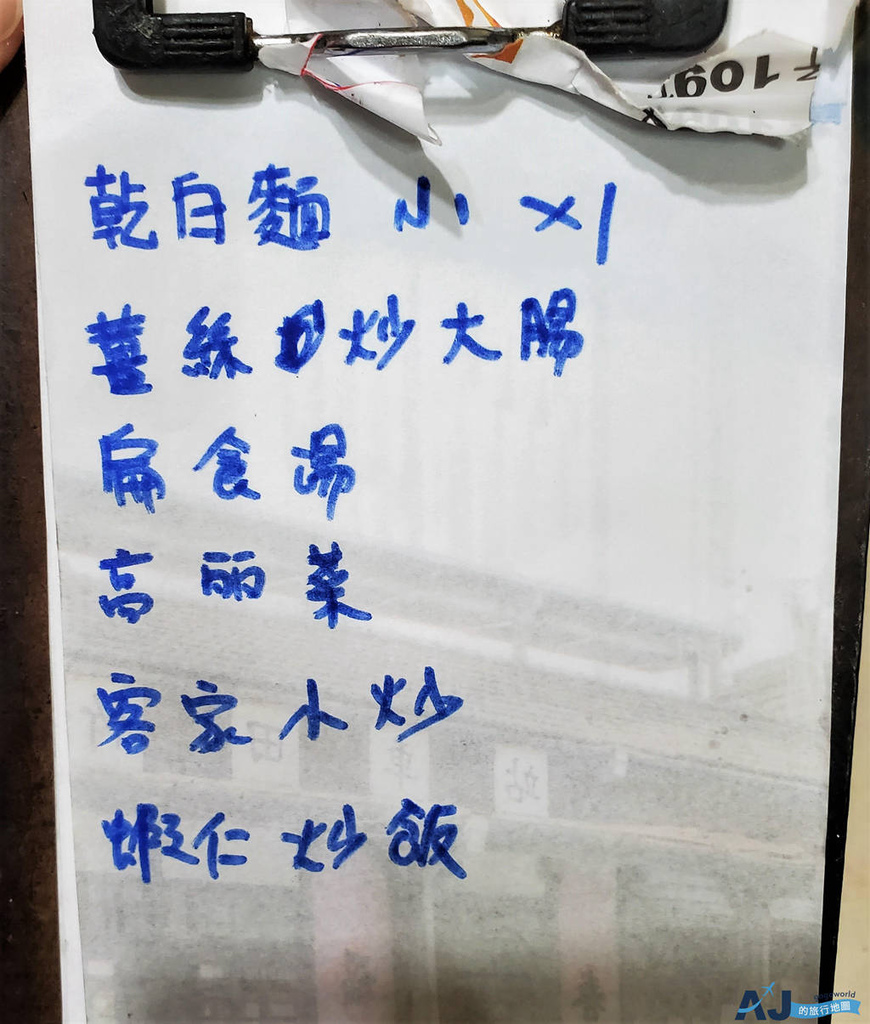 109
乾白麵 小 x1
薑絲炒大腸
扁食湯
高丽菜
客家小炒
蝦仁炒飯
車站
AJ
的旅行地圖